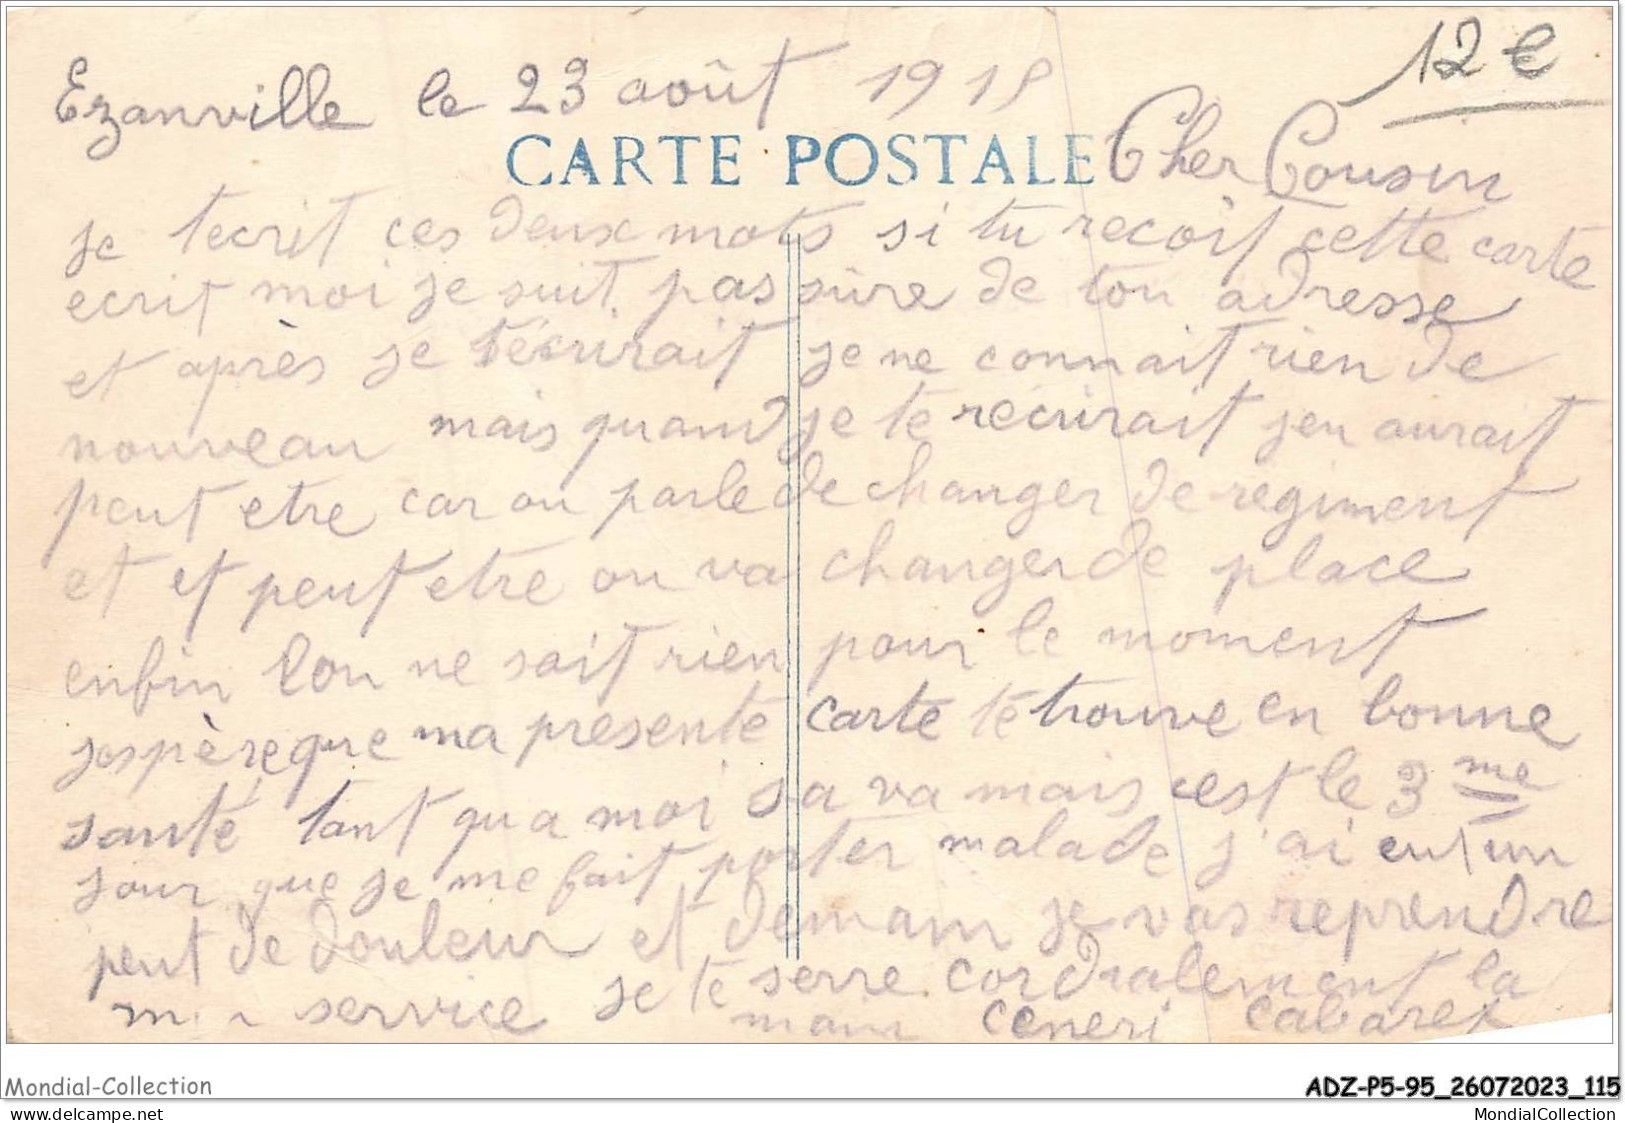 12 €
Ezanville le 23 août 191
CARTE POSTALE
Cher Cousin
je tecrit ces deux mots si tu recoit cette carte
ecrit moi je suit pas sûre de ton adresse
et après je técrirait je ne connait rien de
nouveau mais quand je te récrirait jen aurait
peut etre car on parle de changer de regiment
et et peut etre on va changer de place
enfin lon ne sait rien pour le moment
jespère que ma presente carte te trouve en bonne
santé tant qu a moi sa va mais cest le 3me
jour que je me fait porter malade j'ai eut un
peut de douleur et demain je vas reprendre
service je te serre cordialement la
main Ceneri Cabaret
Mondial-Collection
ADZ-P5-95_26072023_115
www.delcampe.net
MondialCollection